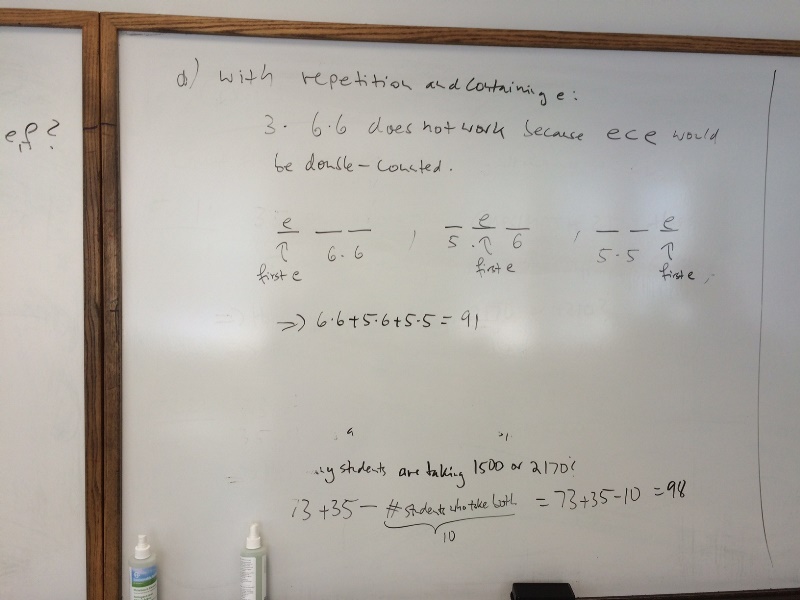 d) with repetition and containing e:
3. 6.6 does not work because ece would
be double-counted.
e _ _ , _ e _ , _ _ e
↑ 6.6 5.↑ 6 5.5 ↑
first e first e first e,
=> 6.6+5.6+5.5 = 91
students are taking 1500 or 2170?
73+35- # students who take both = 73+35-10 = 98
10